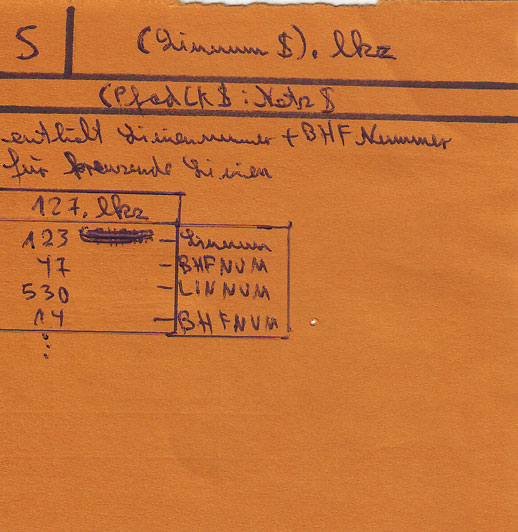 5 (Linnum $). lkz
(Pfad LK $ : Netz $
enthält Liniennummer + BHF Nummer
für kreuzende Linien
127. lkz
123 - Linnum
47 - BHFNUM
530 - LINNUM
14 - BHFNUM